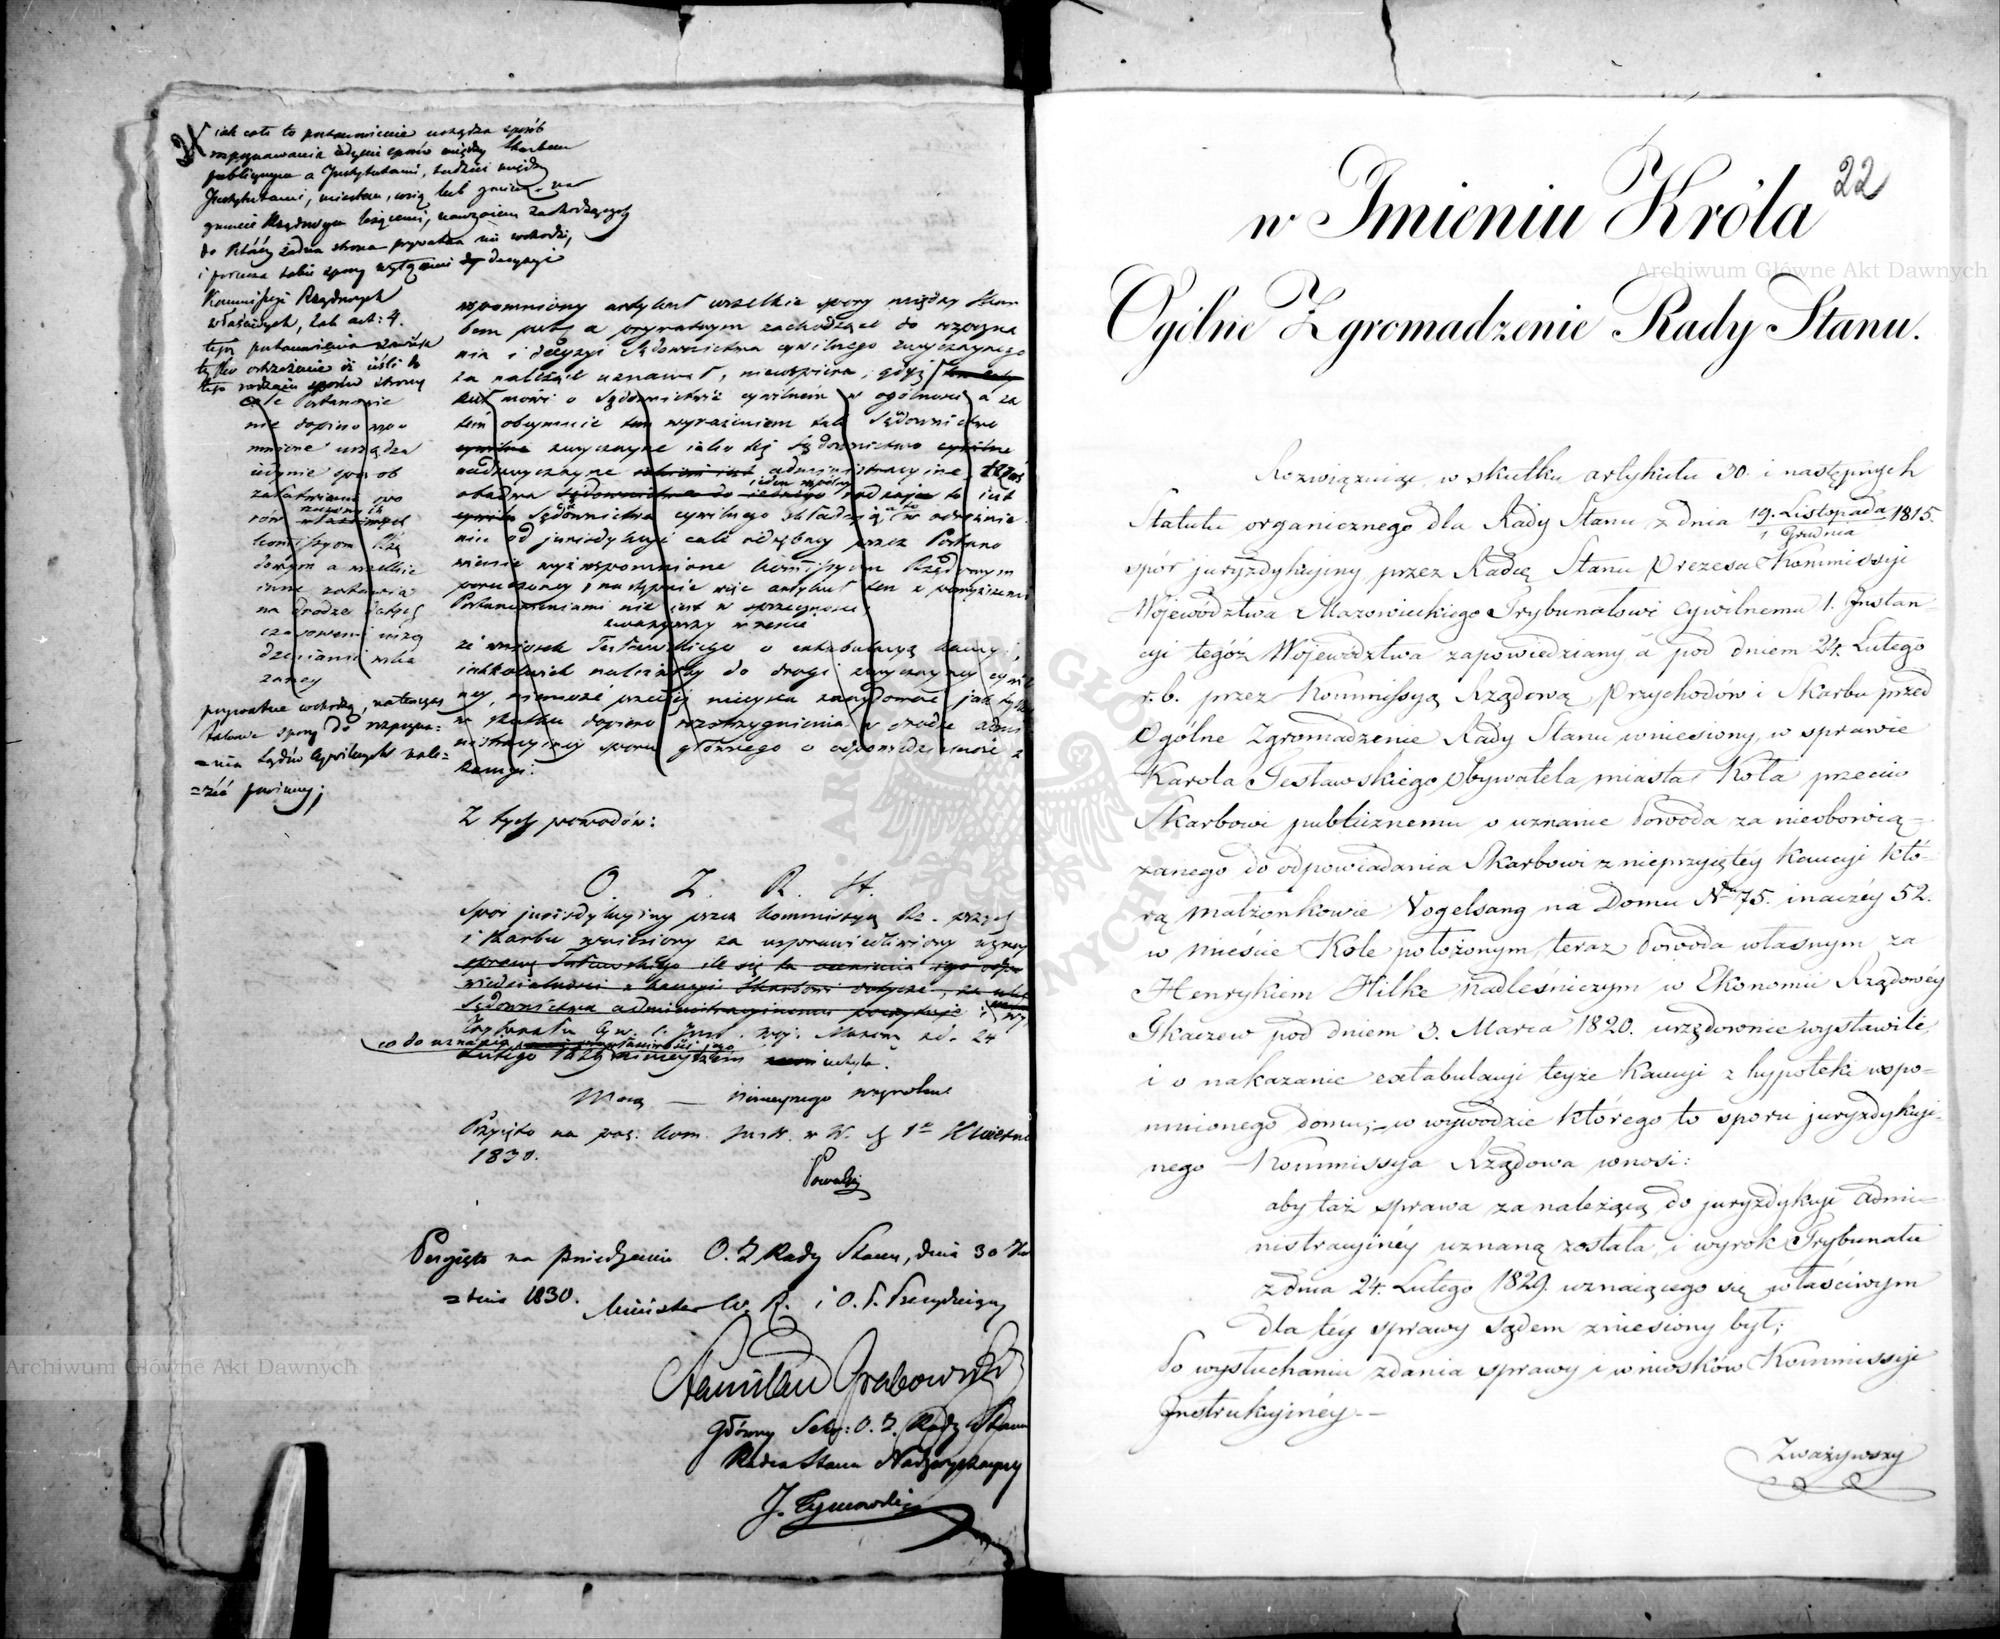 jak całe to postanowienie urządza sposób
rozpoznawania jedynie sporów między Skarbem
publicznym a Instytutami, tudzież między
Instytutami, miastem, wsią lub gminą na
gruncie Rządowym leżącemi, nawzajem zachodzących
do których żadna strona prywatna nie wchodzi,
i porucza takie spory wyłącznie decyzyi
Kommissyi Rządowych
właściwych, zaś art: 4.
tegoż postanowienia zawiera
tylko ostrzeżenie iż jeśli do
tego rodzaju sporów strony
całe Postanowie
nie dopiero wspo
mnione urządza
jedynie sposób
załatwiania spo
rów
Kommissyom Rzą
dowym a wszelkie
inne zostawia
na drodze
czasowemi urzą
dzeniami wska
zaney
prywatne wchodzą, natenczas
takowe spory do rozpozna=
=nia Sądów Cywilnych nale=
=żéć powinny;
wspomniony artykuł wszelkie spory między Skar
bem pub: a prywatnym zachodzące do rozpozna
nia i decyzyi Sądownictwa cywilnego zwyczaynego
za należące uznawał, niewspiera, gdyż
kuł mówi o Sądownictwie cywilném w ogólności a za
tém obeymuie tem wyrażeniem tak Sądownictwo
cywilne zwyczayne iako też Sądownictwo cywilne
nadzwyczayne administracyine,
obadwa Sądownictwa do rodzaju to iest
Sądownictwa cywilnego składaią w odróżnie
niu od jurisdykcyi cale odrębney przez Postano
wienie wyż wspomnione Kommissyom Rządowym
poruczoney i następnie więc artykuł ten z powyższemi
Postanowieniami nie jest w sprzeczności;
zważywszy w reszcie
że wniosek Tesławskiego o extabulacyą kaucyi,
jakkolwiek należałby do drogi zwyczayney cywil
ney, niemoże przecież mieysca znaydować jak tylko
w skutku dopiero rozstrzygnienia w drodze admi
nistracyiney sporu głównego o odpowiedzialność z
kaucyi.
Z tych powodów:
O. Z. R. St.
Spór jurisdykcyiny przez Kommissyą Rz. przych
i Skarbu wniesiony za usprawiedliwiony uznaie
sprawę Tesławskiego ile się to ocenienia iego odpo
wiedzialności z kaucyi Skarbowi dotycze, za
Sądownictwa administracyinemu i wy
Trybunału Cyw. 1. Inst. Woj. Mazow. z d. 24
co do uznania
Lutego 1829 ninieyszém uchyla.
Mocą — ninieyszego wyroku
Przyięto na pos: Kom. Instr. w W. d. 1º Kwietnia
1830.
Przyięto na posiedzeniu O. Z Rady Stanu, dnia 30 Kwie
=tnia 1830.
Minister W. R. i O. P. Prezyduiący
Stanisław Grabowski
Główny Sekr: O. Z. Rady Stanu
Radca Stanu Nadzwyczayny
J. Tymowski
22
w Imieniu Króla
Ogólne Zgromadzenie Rady Stanu.
Rozwiązuiąc, w skutku artykułu 30. i następnych
Statutu organicznego dla Rady Stanu z dnia 19. Listopada/1 Grudnia 1815.
spór juryzdykcyiny przez Radcę Stanu Prezesa Kommissyi
Województwa Mazowieckiego Trybunałowi cywilnemu 1. Instan-
cyi tegóż Województwa zapowiedziany, a pod dniem 24. Lutego
r. b. przez Kommissyą Rządową Przychodów i Skarbu przed
Ogólne Zgromadzenie Rady Stanu wniesiony, w sprawie
Karola Tesławskiego Obywatela miasta Koła przeciw
Skarbowi publicznemu o uznanie Powoda za nieobowią-
zanego do odpowiadania Skarbowi z nieprzyiętey kaucyi któ-
rą małżonkowie Vogelsang na Domu Nro 75. inaczéy 52.
w mieście Kole położonym, teraz Powoda własnym za
Henrykiem Hilke Nadleśniczym w Ekonomii Rządowéy
Tkaczew pod dniem 3. Marca 1820. urzędownie wystawili,
i o nakazanie extabulacyi teyże kaucyi z hypoteki wspo-
mnionego domu;— w wywodzie którego to sporu juryzdykcyi-
nego Kommissya Rządowa wnosi:
aby taż sprawa za należącą do juryzdykcyi admi-
nistracyinéy uznaną została, i wyrok Trybunału
z dnia 24. Lutego 1829. uznaiącego się właściwym
dla tey sprawy sądem zniesiony był;
Po wysłuchaniu zdania sprawy i wniosków Kommissyi
Instrukcyinéy.—
Zważywszy
Archiwum Główne Akt Dawnych
Archiwum Główne Akt Dawnych